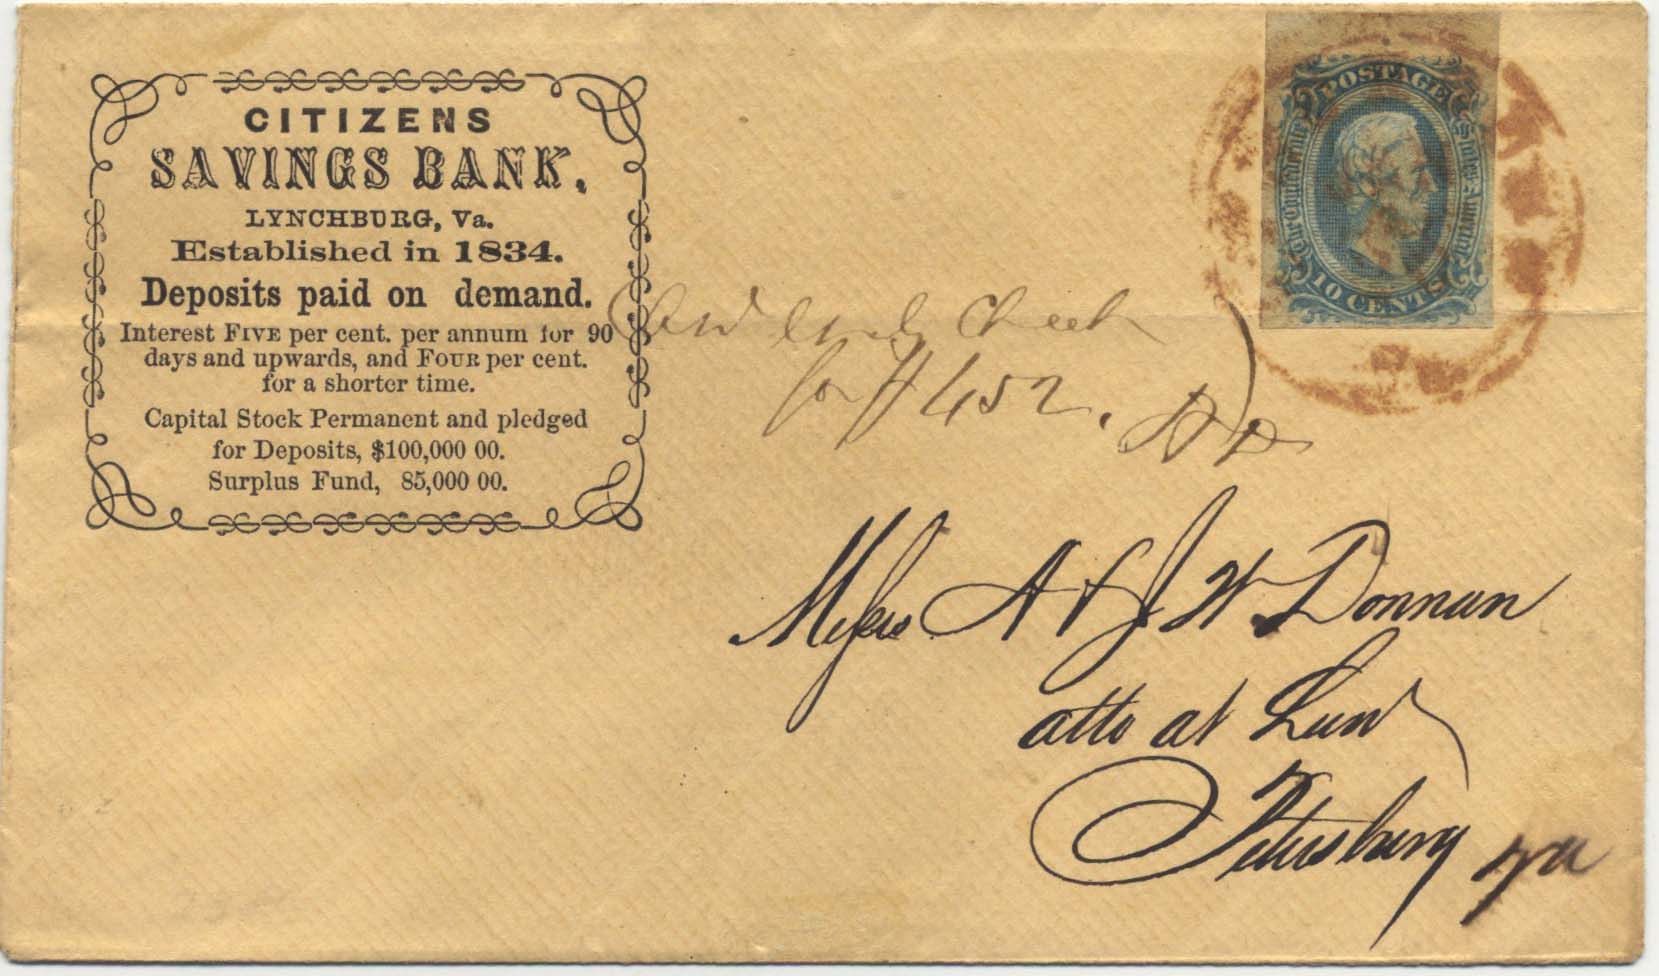 CITIZENS
SAVINGS BANK,
LYNCHBURG, Va.
Established in 1834.
Deposits paid on demand.
Interest FIVE per cent. per annum for 90
days and upwards, and FOUR per cent.
for a shorter time.
Capital Stock Permanent and pledged
for Deposits, $100,000 00.
Surplus Fund, 85,000 00.
POSTAGE
The Confederate States America
10 CENTS
Check
for $452.
A & J W Donnan
atto at Law
Petersburg Va